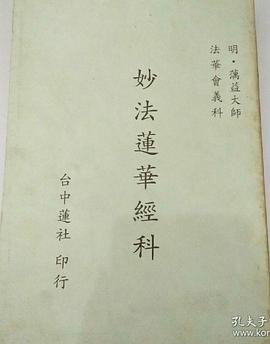 明·蕅益大師
法華會義科
妙法蓮華經科
台中蓮社 印行
孔夫子
www.kon